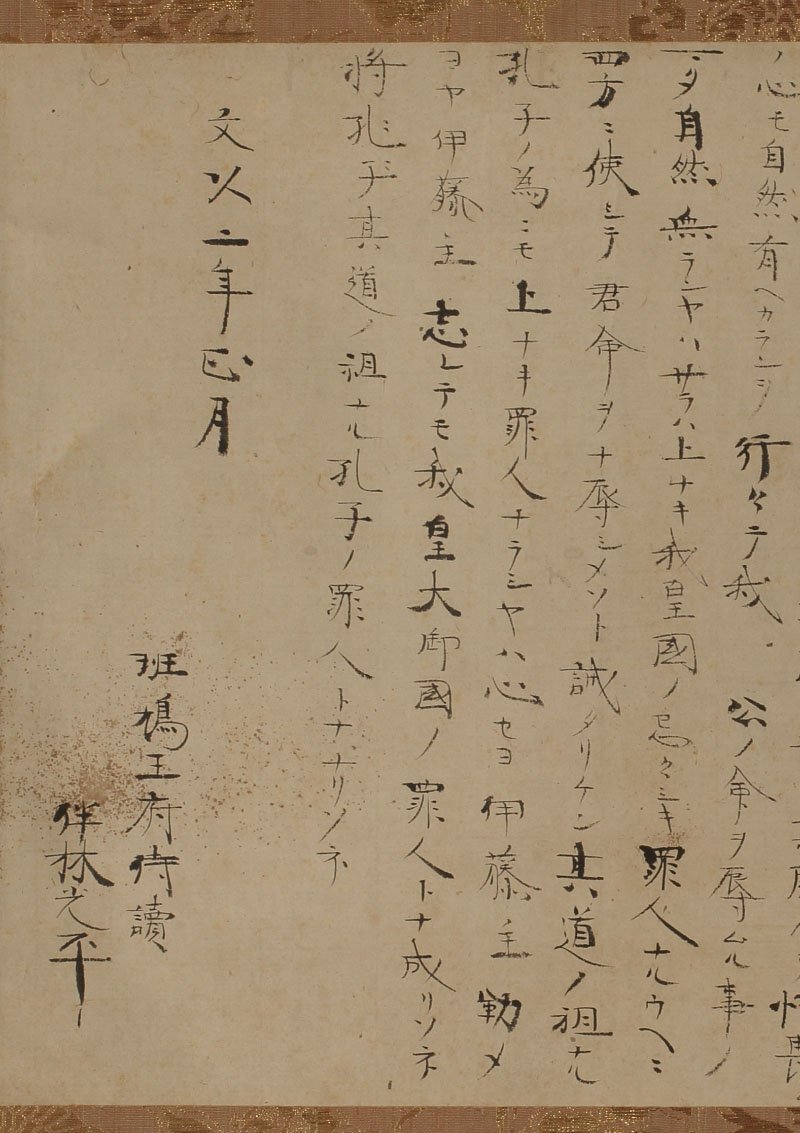 ノ心モ自然有ヘカランヲ行々テ我公ノ命ヲ辱ムル事ノ
アリタ自然無ランヤハサラハ上ナキ我皇國ノ忌々シキ罪人ナルウヘニ
四方ニ使シテ君命ヲナ辱シメソト誡タリケン其道ノ祖ナル
孔子ノ為ニモ上ナキ罪人ナラシヤハ心セヨ伊藤主勤メ
ヨヤ伊藤主志レテモ我皇大御國ノ罪人トナ成リソネ
将孔子其道ノ祖ナル孔子ノ罪人トナナリソネ
文久二年正月
班鳩王府侍讀
伴林光平